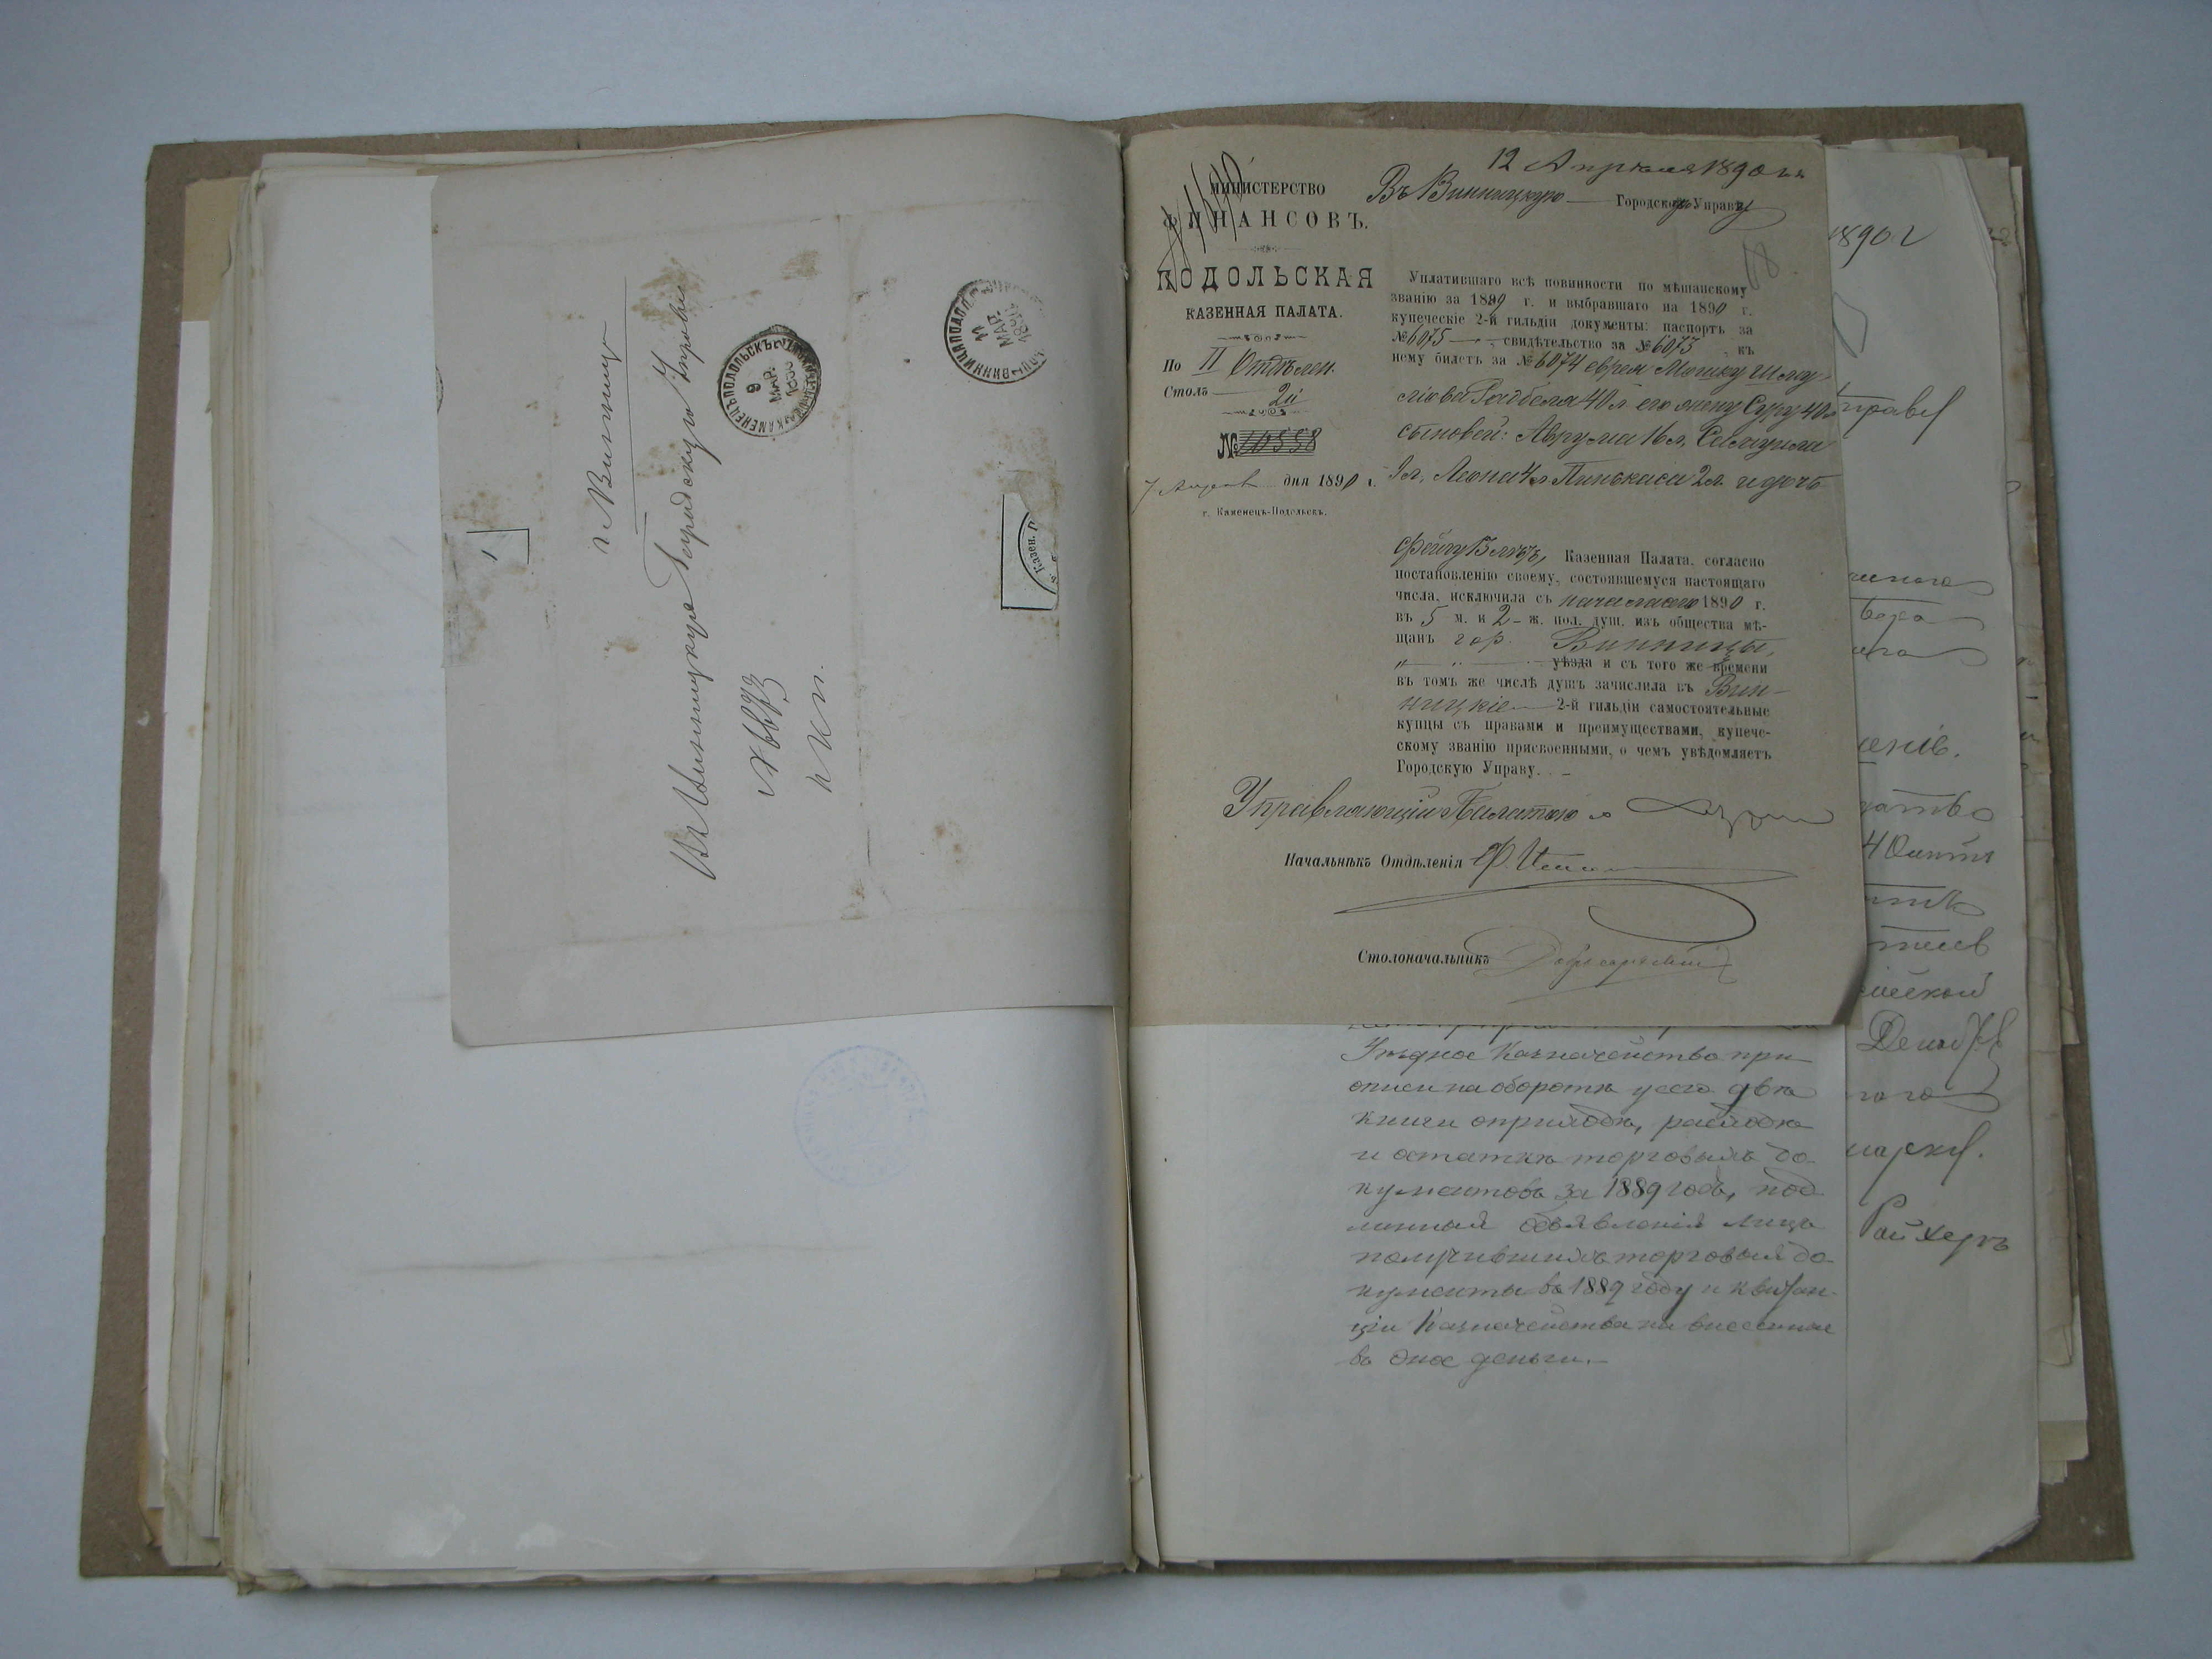 г. Винница
Въ Винницкую Городскую Управу
№ 8873
К. П.
КАМЕНЕЦЪ ПОДОЛЬСКЪ
9
МАР.
1890
ВИННИЦА ПОД.
11
МАР.
1890
Казен. П
12 Апрѣля 1890 г.
МИНИСТЕРСТВО
ФИНАНСОВЪ.
ПОДОЛЬСКАЯ
КАЗЕННАЯ ПАЛАТА.
По II Отдѣлен.
Столъ 2й
№ 10558
7 Апрѣля дня 1890 г.
г. Каменецъ-Подольскъ.
Въ Винницкую Городскую Управу
18
Уплатившаго всѣ повинности по мѣщанскому
званію за 1889 г. и выбравшаго на 1890 г.
купеческіе 2-й гильдіи документы: паспортъ за
№ 6075 свидѣтельство за № 6073, къ
нему билетъ за № 6074 еврея Мошку Шму
ліова 40 л его жену Суру 40 л
сыновей: Аврума 16 л, Самуила
9 л, Леона 4 л Пинькаса 2 л и дочь
Фейгу Казенная Палата, согласно
постановленію своему, состоявшемуся настоящаго
числа, исключила съ начала сего 1890 г.
въ 5 м. и 2 ж. пол. душ. изъ общества мѣ-
щанъ гор. Винницы,
уѣзда и съ того же времени
въ томъ же числѣ душъ зачислила въ Вин-
ницкіе 2-й гильдіи самостоятельные
купцы съ правами и преимуществами, купече-
скому званію присвоенными, о чемъ увѣдомляетъ
Городскую Управу.
Управляющій Палатою
Начальникъ Отдѣленія
Столоначальникъ
Уѣздное Казначейство при
описи на оборотѣ у сего двѣ
книги о приходѣ, расходѣ
и остаткѣ торговыхъ до-
кументовъ за 1889 годъ, под
линныя объявленія лицъ
получившихъ торговыя до-
кументы въ 1889 году и квитан-
ціи Казначейства на внесенныя
въ оное деньги.
1890 г
Райхеръ